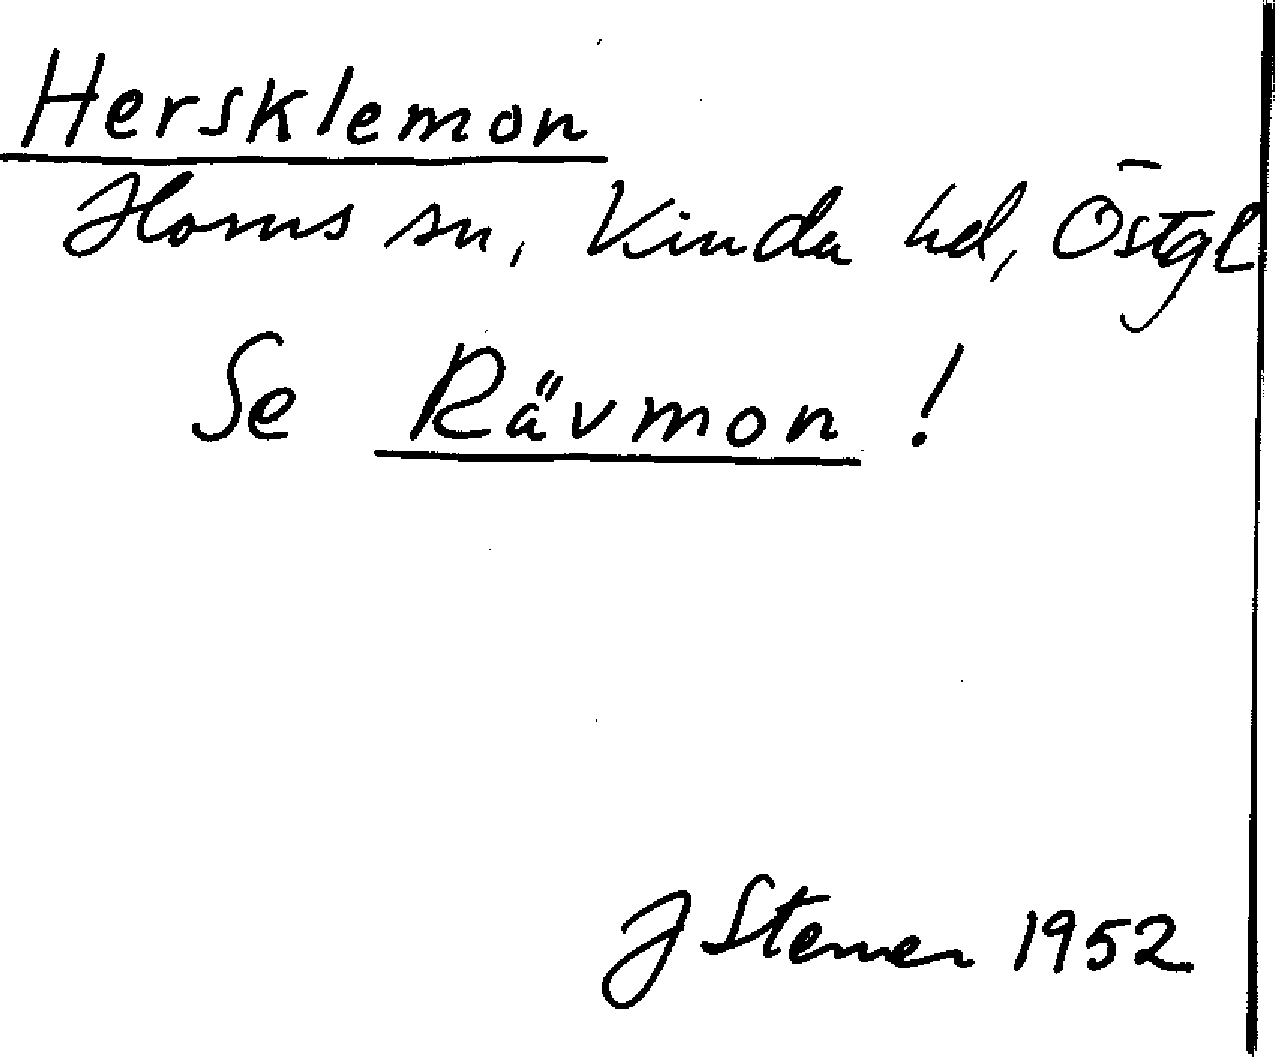 Hersklemon
Horns sn, Kinda hd, Östgl
Se Rävmon!
J Stemer 1952